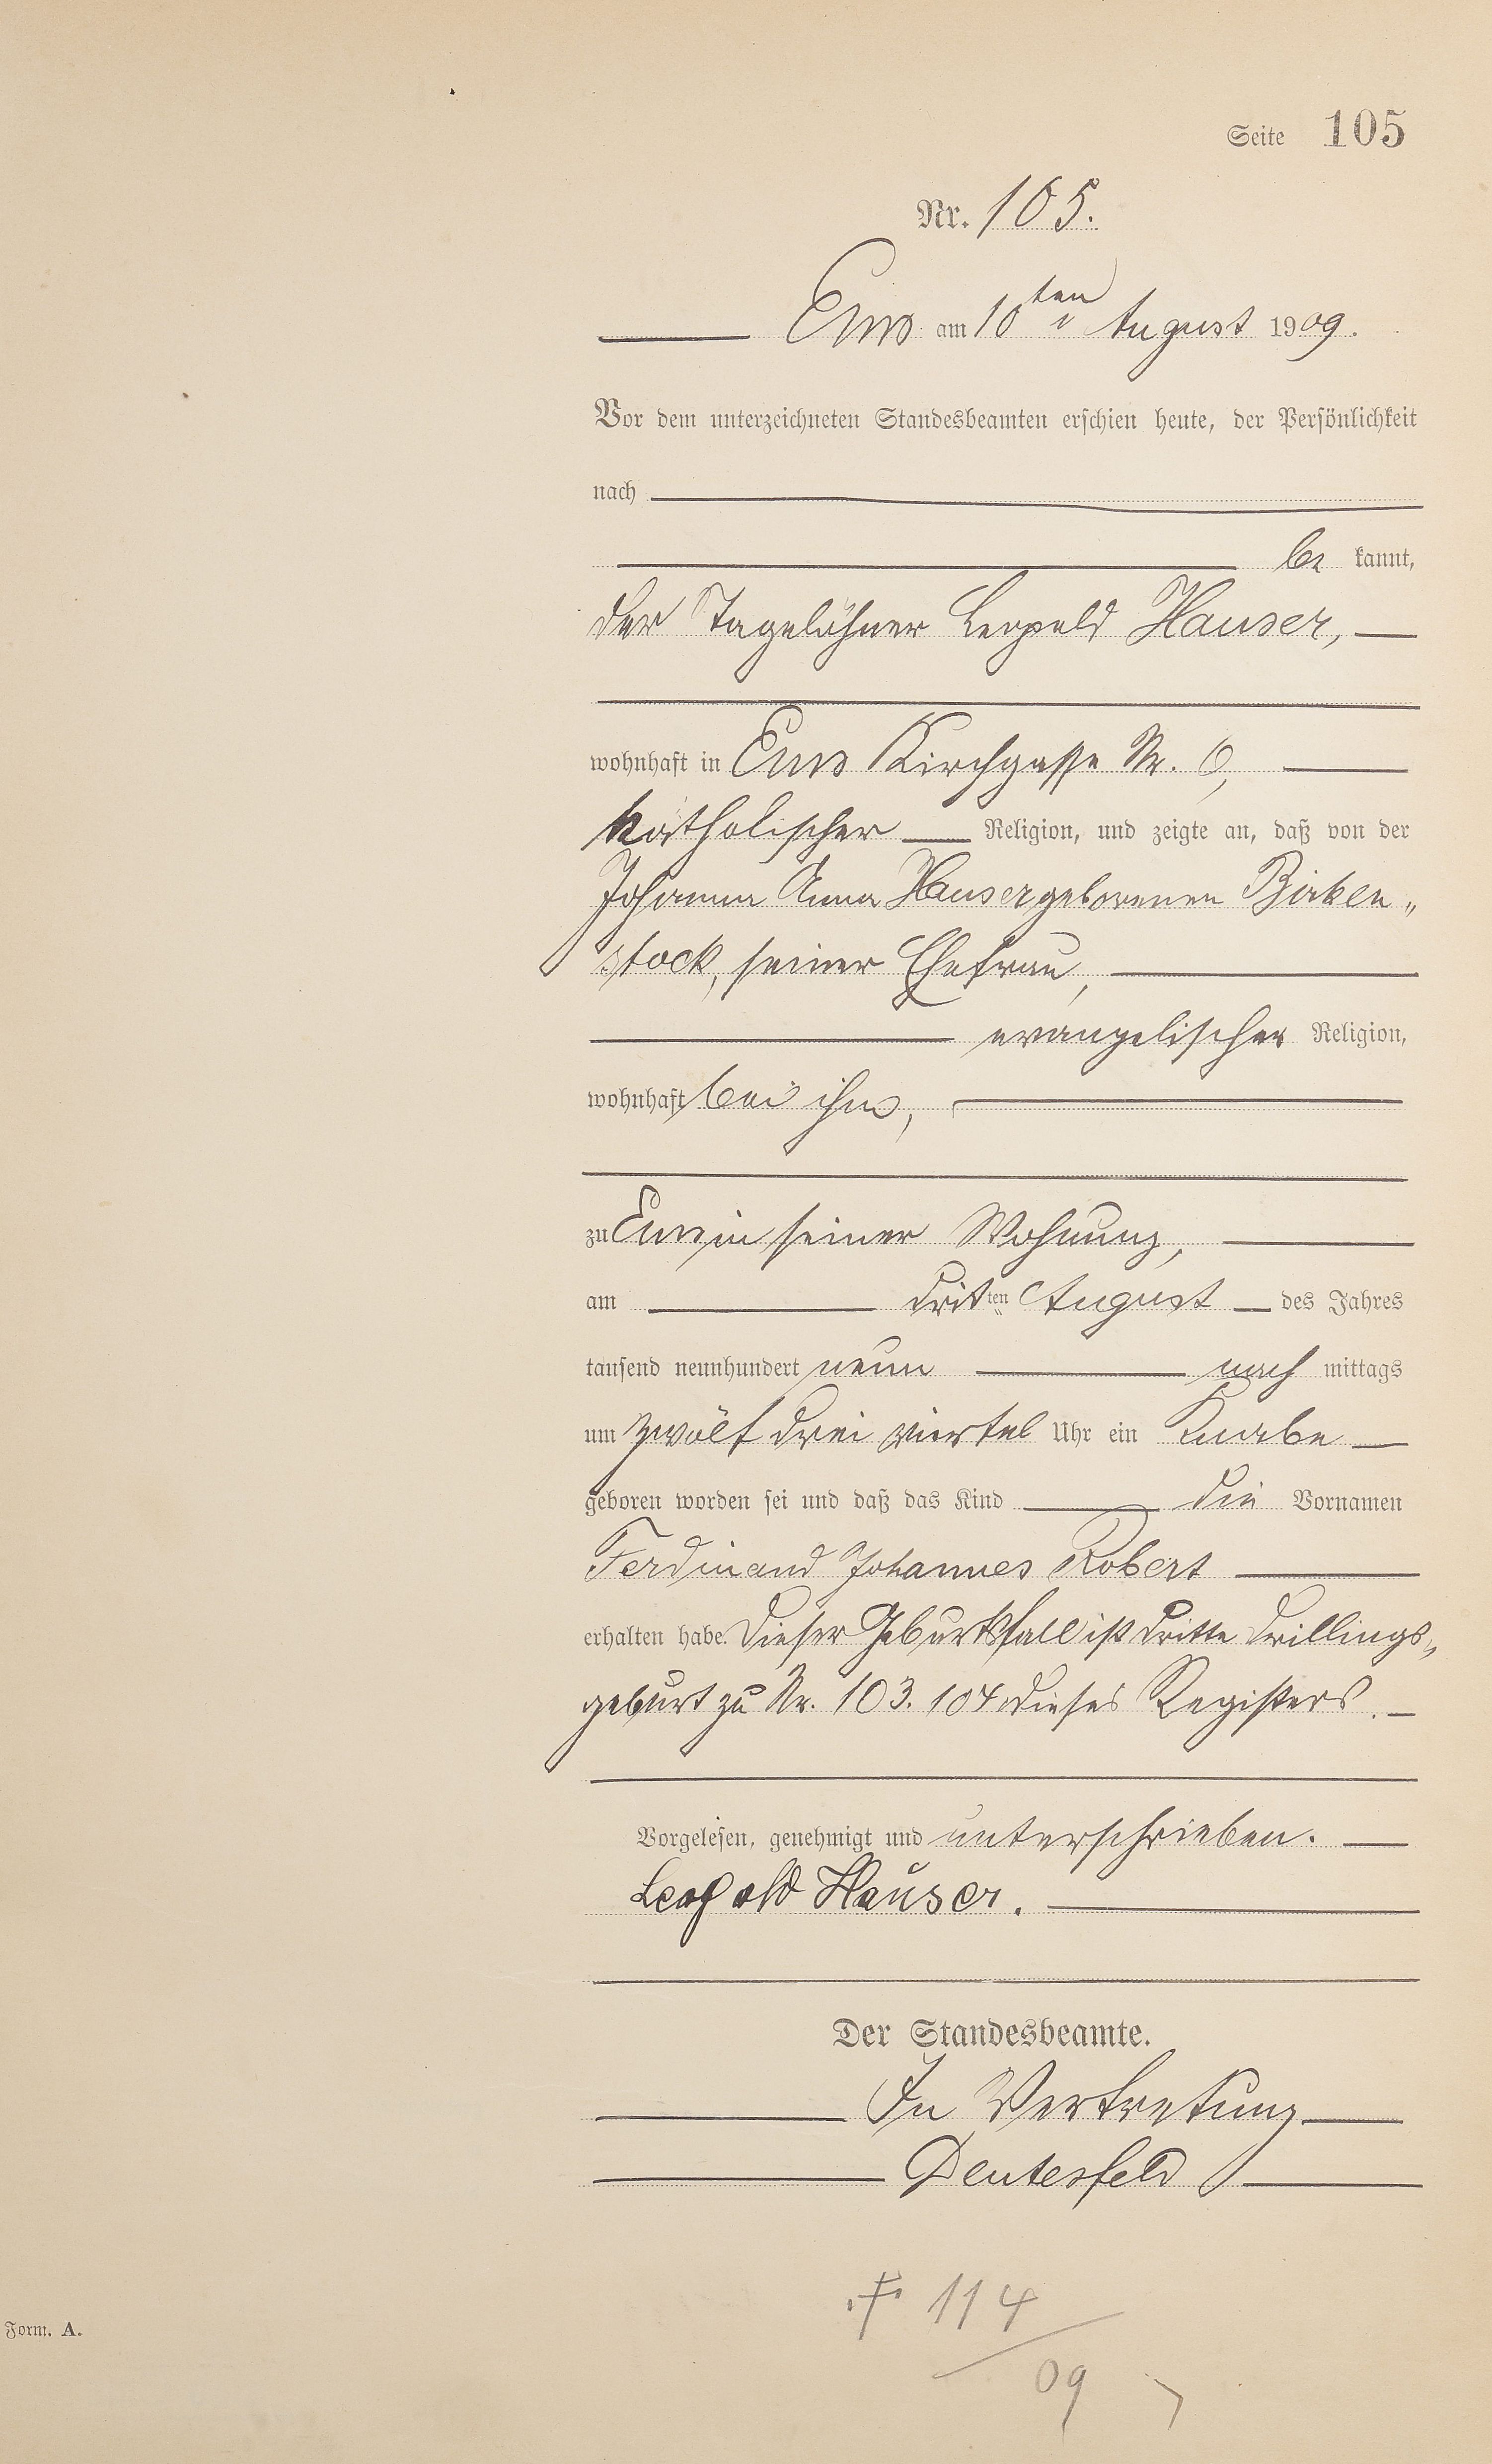 Seite 105
Nr. 105.
Ems am 10ten August 1909.
Vor dem unterzeichneten Standesbeamten erschien heute, der Persönlichkeit
nach
be kannt,
der Tagelöhner Leopold Hauser,
wohnhaft in Ems Kirchgasse Nr. 6,
katholischer Religion, und zeigte an, daß von der
Johanna Anna Hauser geborenen Birken„
stock, seiner Ehefrau,
evangelischer Religion,
wohnhaft bei ihm,
zu Ems in seiner Wohnung,
am dritten August des Jahres
tausend neunhundert neun nach mittags
um zwölf drei viertel Uhr ein Knabe
geboren worden sei und daß das Kind die Vornamen
Ferdinand Johannes Robert
erhalten habe. Dieser Geburtsfall ist dritte Drillings„
geburt zu Nr. 103. 104 dieses Registers.
Vorgelesen, genehmigt und unterschrieben.
Leopold Hauser.
Der Standesbeamte.
In Vertretung
Deutesfeld
† 114
09
Form. A.